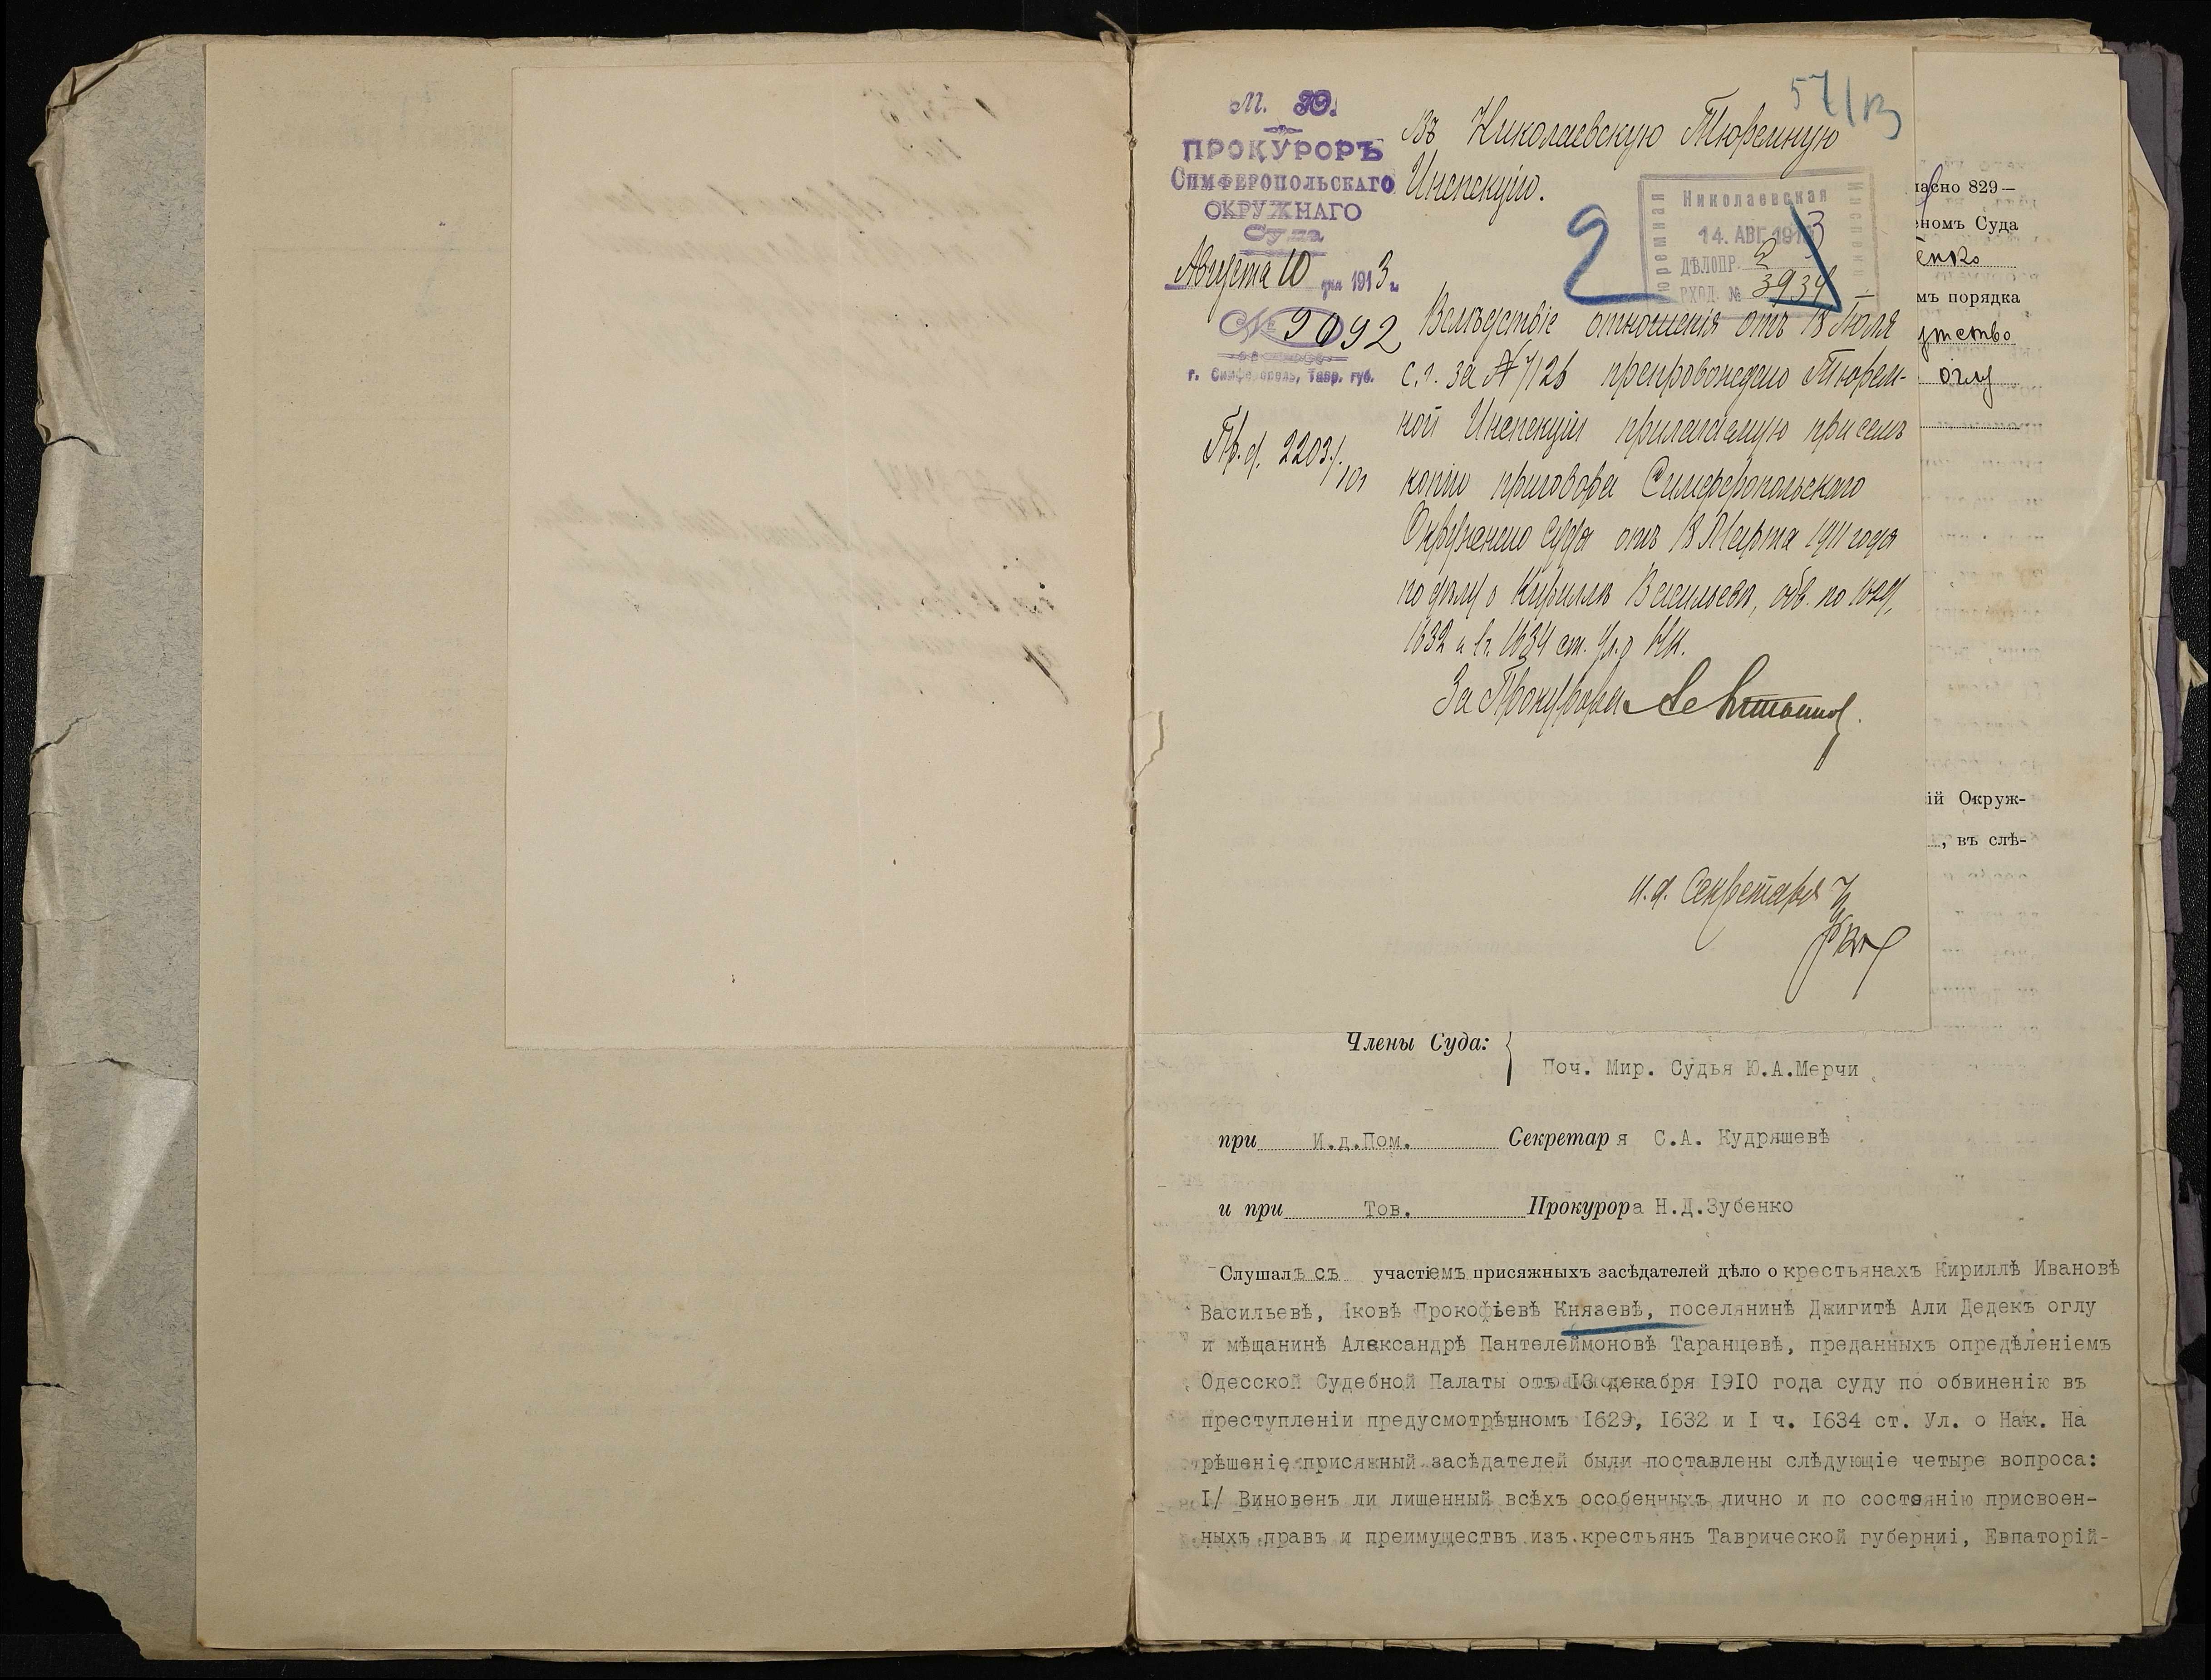 М. Ю.
ПРОКУРОРЪ
СИМФЕРОПОЛЬСКАГО
ОКРУЖНАГО
Суда
Августа 10 дня 1913 г.
№ 9092
г. Симферополь, Тавр. губ.
57/13
Въ Николаевскую Тюремную
Инспекцію.
2
Николаевская
Тюремная
Инспекція
14. АВГ. 1913
ДѢЛОПР. 2
ВХОД. № 3934
Вслѣдствіе отношенія отъ 18 Іюля
с.г. за № 7126 препровождаю Тюрем-
ной Инспекціи прилагаемую при семъ
копію приговора Симферопольскаго
Окружнаго Суда отъ 18 Марта 1911 года
по дѣлу о Кириллѣ Васильевѣ, обв. по 1629,
1632 и 1 ч. 1634 ст. Ул. о Нк.
За Прокурора
и.д. Секретаря
ласно 829—
еномъ Суда
енко
мъ порядка
утство
оглу
ій Окруж-
, въ слѣ-
Члены Суда:
Поч. Мир. Судья Ю.А.Мерчи
при И.д.Пом. Секретаря С.А. Кудряшевѣ
и при Тов. Прокурора Н.Д.Зубенко
Слушалъ съ участіемъ присяжныхъ засѣдателей дѣло о крестьянахъ Кириллѣ Ивановѣ
Васильевѣ, Яковѣ Прокофьевѣ Князевѣ, поселянинѣ Джигитѣ Али Дедекъ оглу
и мѣщанинѣ Александрѣ Пантелеймоновѣ Таранцевѣ, преданныхъ опредѣленіемъ
Одесской Судебной Палаты отъ 13 декабря 1910 года суду по обвиненію въ
преступленіи предусмотрѣнномъ 1629, 1632 и I ч. 1634 ст. Ул. о Нак. На
рѣшеніе присяжный засѣдателей были поставлены слѣдующіе четыре вопроса:
I/ Виновенъ ли лишенный всѣхъ особенныхъ лично и по состоянію присвоен-
ныхъ правъ и преимуществъ изъ крестьянъ Таврической губерніи, Евпаторій-